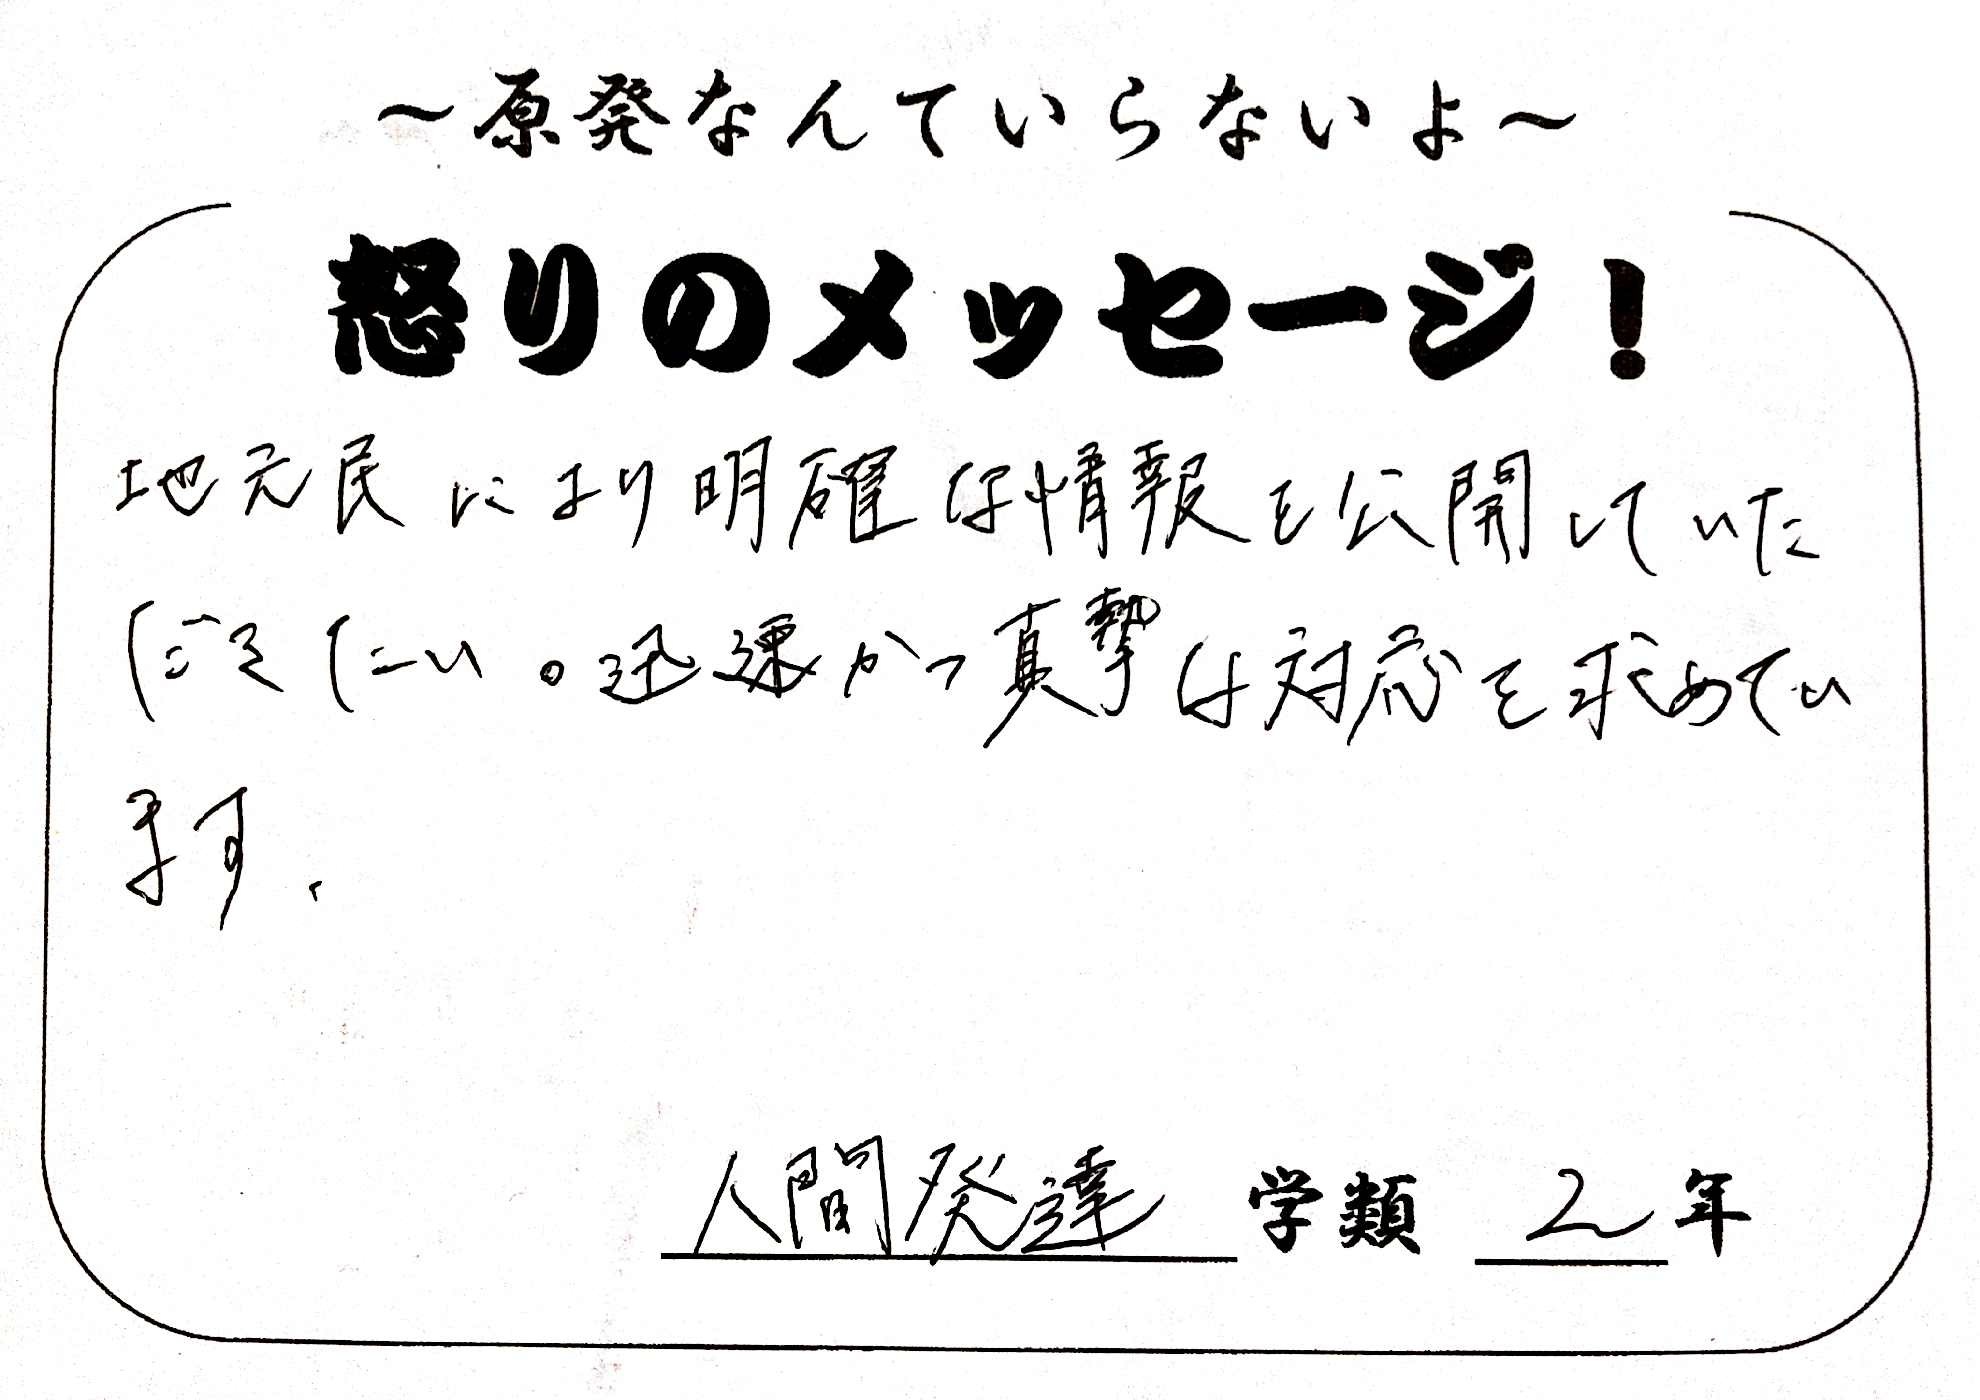 ～原発なんていらないよ～
怒りのメッセージ！
地元民により明確な情報を公開していた
だきたい。迅速かつ真摯な対応を求めてい
ます、
人間発達 学類 2年